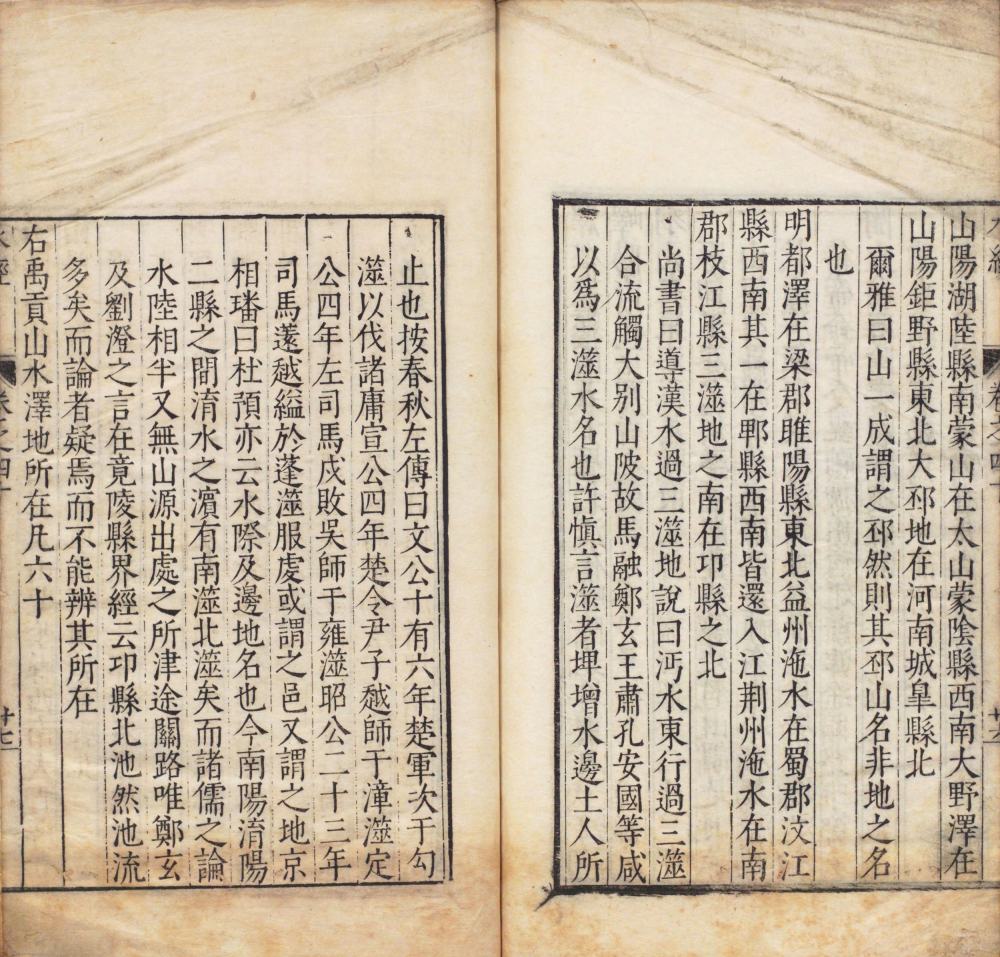 山陽湖陸縣南蒙山在太山蒙陰縣西南大野澤在
山陽鉅野縣東北大邳地在河南城臯縣北
爾雅曰山一成謂之邳然則其邳山名非地之名
也
明都澤在梁郡睢陽縣東北益州沲水在蜀郡汶江
縣西南其一在郫縣西南皆還入江荆州沲水在南
郡枝江縣三澨地之南在卭縣之北
尚書曰導漢水過三澨地說曰沔水東行過三澨
合流觸大别山陂故馬融鄭玄王肅孔安國等咸
以爲三澨水名也許慎言澨者埤增水邊土人所
止也按春秋左傳曰文公十有六年楚軍次于勾
澨以伐諸庸宣公四年楚令尹子越師于漳澨定
公四年左司馬戌敗吳師于雍澨昭公二十三年
司馬薳越縊於蓬澨服虔或謂之邑又謂之地京
相璠曰杜預亦云水際及邊地名也今南陽淯陽
二縣之間淯水之濱有南澨北澨矣而諸儒之論
水陸相半又無山源出處之所津途關路唯鄭玄
及劉澄之言在竟陵縣界經云卭縣北池然池流
多矣而論者疑焉而不能辨其所在
右禹貢山水澤地所在凡六十
水經
卷之四十
廿七